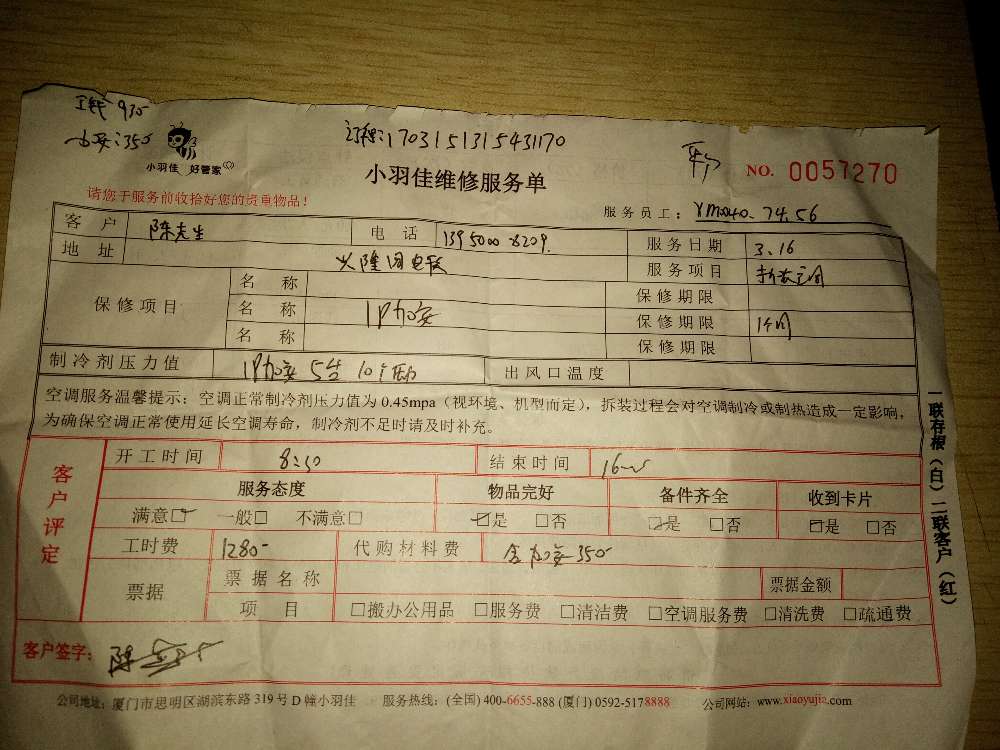 工钱 935
加安:350
订单:1703151315431170
小羽佳 好管家
小羽佳维修服务单
NO. 0057270
请您于服务前收拾好您的贵重物品!
服务员工:
客户 陈先生 电话 服务日期 3.16
地址 服务项目
保修项目 名称 保修期限
名称 1P加安 保修期限 1个月
名称 保修期限
制冷剂压力值 1P加安 出风口温度
空调服务温馨提示:空调正常制冷剂压力值为 0.45mpa(视环境、机型而定),拆装过程会对空调制冷或制热造成一定影响,
为确保空调正常使用延长空调寿命,制冷剂不足时请及时补充。
客户评定
开工时间 8:30 结束时间
服务态度 物品完好 备件齐全 收到卡片
满意☑ 一般□ 不满意□ ☑是 □否 ☑是 □否 ☑是 □否
工时费 1280- 代购材料费 含加安350
票据 票据名称 票据金额
项目 □搬办公用品 □服务费 □清洁费 □空调服务费 □清洗费 □疏通费
客户签字: 陈
一联存根(白)二联客户(红)
公司地址:厦门市思明区湖滨东路 319 号 D 幢小羽佳 服务热线:(全国) 400-6655-888 (厦门) 0592-5178888 公司网站:www.xiaoyujia.com